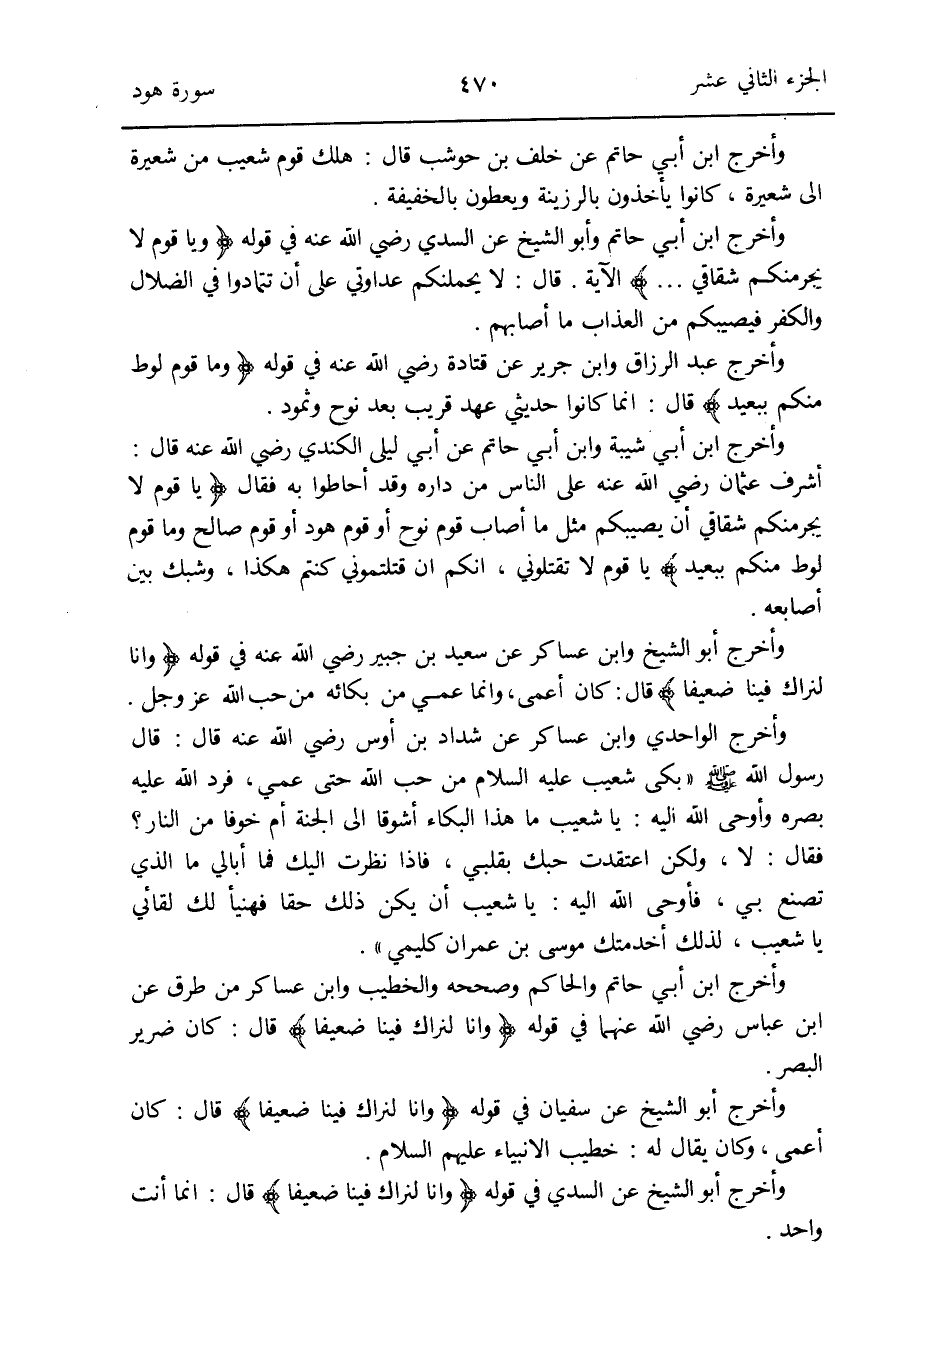 الجزء الثاني عشر ٤٧٠ سورة هود
وأخرج ابن أبي حاتم عن خلف بن حوشب قال : هلك قوم شعيب من شعيرة
الى شعيرة ، كانوا يأخذون بالرزينة ويعطون بالخفيفة .
وأخرج ابن أبي حاتم وأبو الشيخ عن السدي رضي الله عنه في قوله ﴿ ويا قوم لا
يجرمنكم شقاقي ... ﴾ الآية . قال : لا يحملنكم عداوتي على أن تتمادوا في الضلال
والكفر فيصيبكم من العذاب ما أصابهم .
وأخرج عبد الرزاق وابن جرير عن قتادة رضي الله عنه في قوله ﴿ وما قوم لوط
منكم ببعيد ﴾ قال : انما كانوا حديثي عهد قريب بعد نوح وثمود .
وأخرج ابن أبي شيبة وابن أبي حاتم عن أبي ليلى الكندي رضي الله عنه قال :
أشرف عثمان رضي الله عنه على الناس من داره وقد أحاطوا به فقال ﴿ يا قوم لا
يجرمنكم شقاقي أن يصيبكم مثل ما أصاب قوم نوح أو قوم هود أو قوم صالح وما قوم
لوط منكم ببعيد ﴾ يا قوم لا تقتلوني ، انكم ان قتلتموني كنتم هكذا ، وشبك بين
أصابعه .
وأخرج أبو الشيخ وابن عساكر عن سعيد بن جبير رضي الله عنه في قوله ﴿ وانا
لنراك فينا ضعيفا ﴾ قال : كان أعمى ، وانما عمي من بكائه من حب الله عز وجل .
وأخرج الواحدي وابن عساكر عن شداد بن أوس رضي الله عنه قال : قال
رسول الله ﷺ « بكى شعيب عليه السلام من حب الله حتى عمي ، فرد الله عليه
بصره وأوحى الله اليه : يا شعيب ما هذا البكاء أشوقا الى الجنة أم خوفا من النار ؟
فقال : لا ، ولكن اعتقدت حبك بقلبي ، فاذا نظرت اليك فما أبالي ما الذي
تصنع بي ، فأوحى الله اليه : يا شعيب أن يكن ذلك حقا فهنيأ لك لقائي
يا شعيب ، لذلك أخدمتك موسى بن عمران كليمي » .
وأخرج ابن أبي حاتم والحاكم وصححه والخطيب وابن عساكر من طرق عن
ابن عباس رضي الله عنهما في قوله ﴿ وانا لنراك فينا ضعيفا ﴾ قال : كان ضرير
البصر .
وأخرج أبو الشيخ عن سفيان في قوله ﴿ وانا لنراك فينا ضعيفا ﴾ قال : كان
أعمى ، وكان يقال له : خطيب الانبياء عليهم السلام .
وأخرج أبو الشيخ عن السدي في قوله ﴿ وانا لنراك فينا ضعيفا ﴾ قال : انما أنت
واحد .